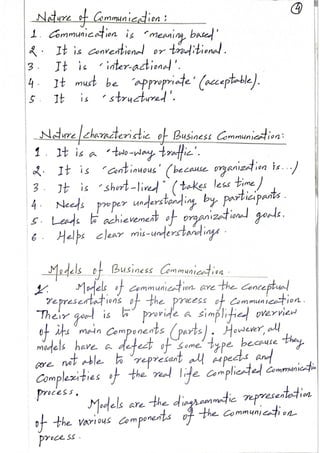 4
Nature of Communication:
1. Communication is 'meaning based'
2. It is conventional or traditional.
3. It is 'inter-actional'.
4. It must be 'appropriate' (acceptable).
5. It is 'structured'.
Nature/characteristic of Business Communication:
1. It is a 'two-way traffic'.
2. It is 'continuous' (because organization is...)
3. It is 'short-lived' (takes less time)
4. Needs proper understanding by participants.
5. Leads to achievement of organizational goals.
6. Helps clear mis-understandings.
Models of Business Communication.
1. Models of communication are the conceptual
representations of the process of communication.
Their goal is to provide a simplified overview
of its main components (parts). However, all
models have a defect of some type because they
are not able to represent all aspects and
Complexities of the real life complicated communication
process.
Models are the diagrammatic representation
of the various components of the communication
process.